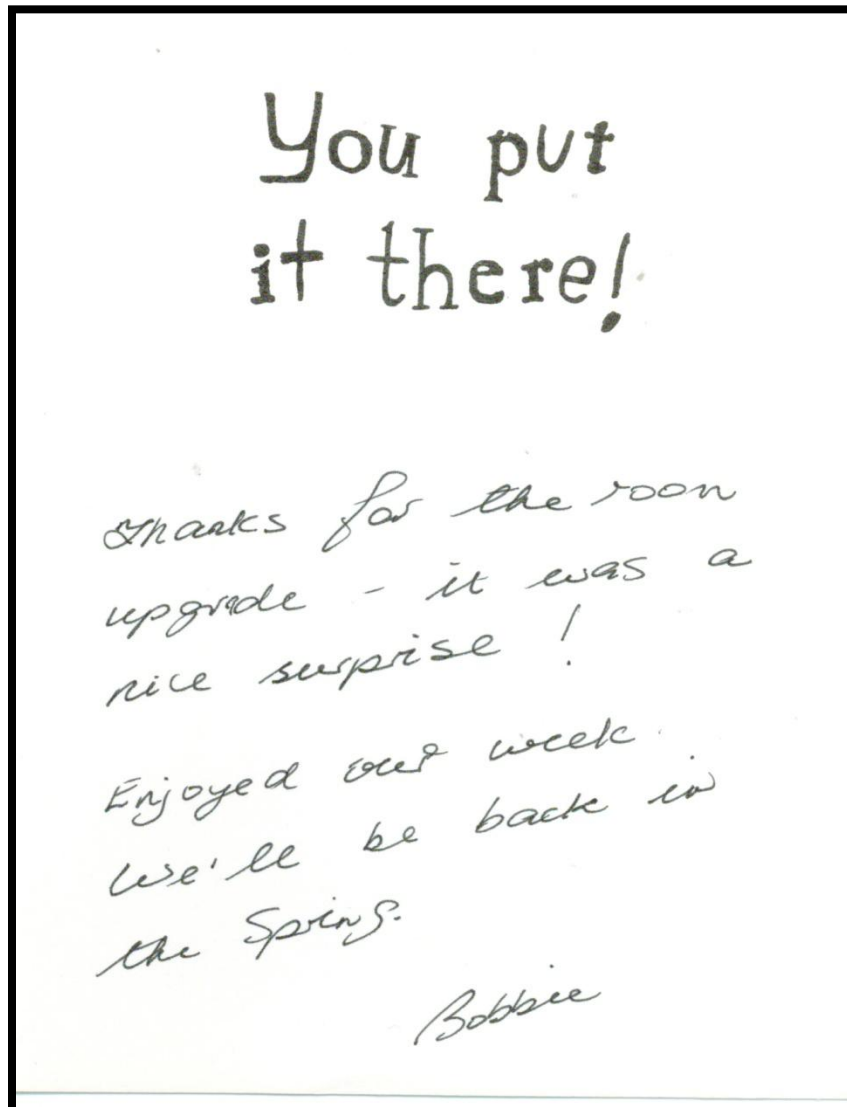 You put
it there!
Thanks for the room
upgrade - it was a
nice surprise!
Enjoyed our week.
We'll be back in
the Spring.
Bobbie